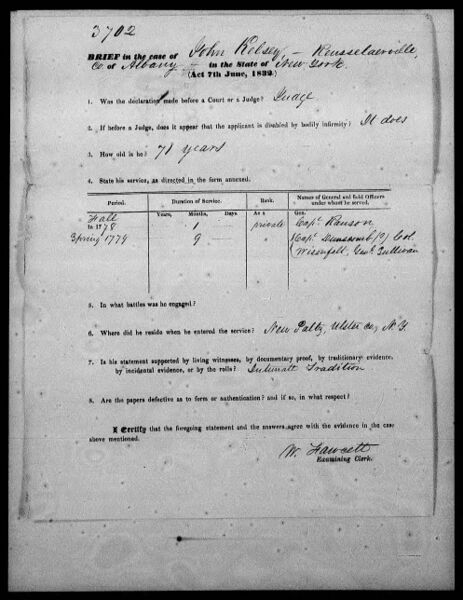 3702
BRIEF in the case of John Kelsey – Rensselaerville,
Co of Albany – in the State of New York.
(Act 7th June, 1832.)
1. Was the declaration made before a Court or a Judge? Judge
2. If before a Judge, does it appear that the applicant is disabled by bodily infirmity? It does
3. How old is he? 71 years
4. State his service, as directed in the form annexed.
Period. Duration of Service. Rank. Names of General and field Officers under whom served.
Years, Months, Days. As a Gen.
Fall
in 1778 1 private Capt. Ranson
Spring 1779 9 " Capt. Dunscomb Col.
Wisenfelt, Genl. Sullivan
5. In what battles was he engaged?
6. Where did he reside when he entered the service? New Paltz, Ulster co, N.Y.
7. Is his statement supported by living witnesses, by documentary proof, by traditionary evidence,
by incidental evidence, or by the rolls? Tradition
8. Are the papers defective as to form or authentication? and if so, in what respect?
I Certify that the foregoing statement and the answers agree with the evidence in the case
above mentioned.
W. Fawcett
Examining Clerk.